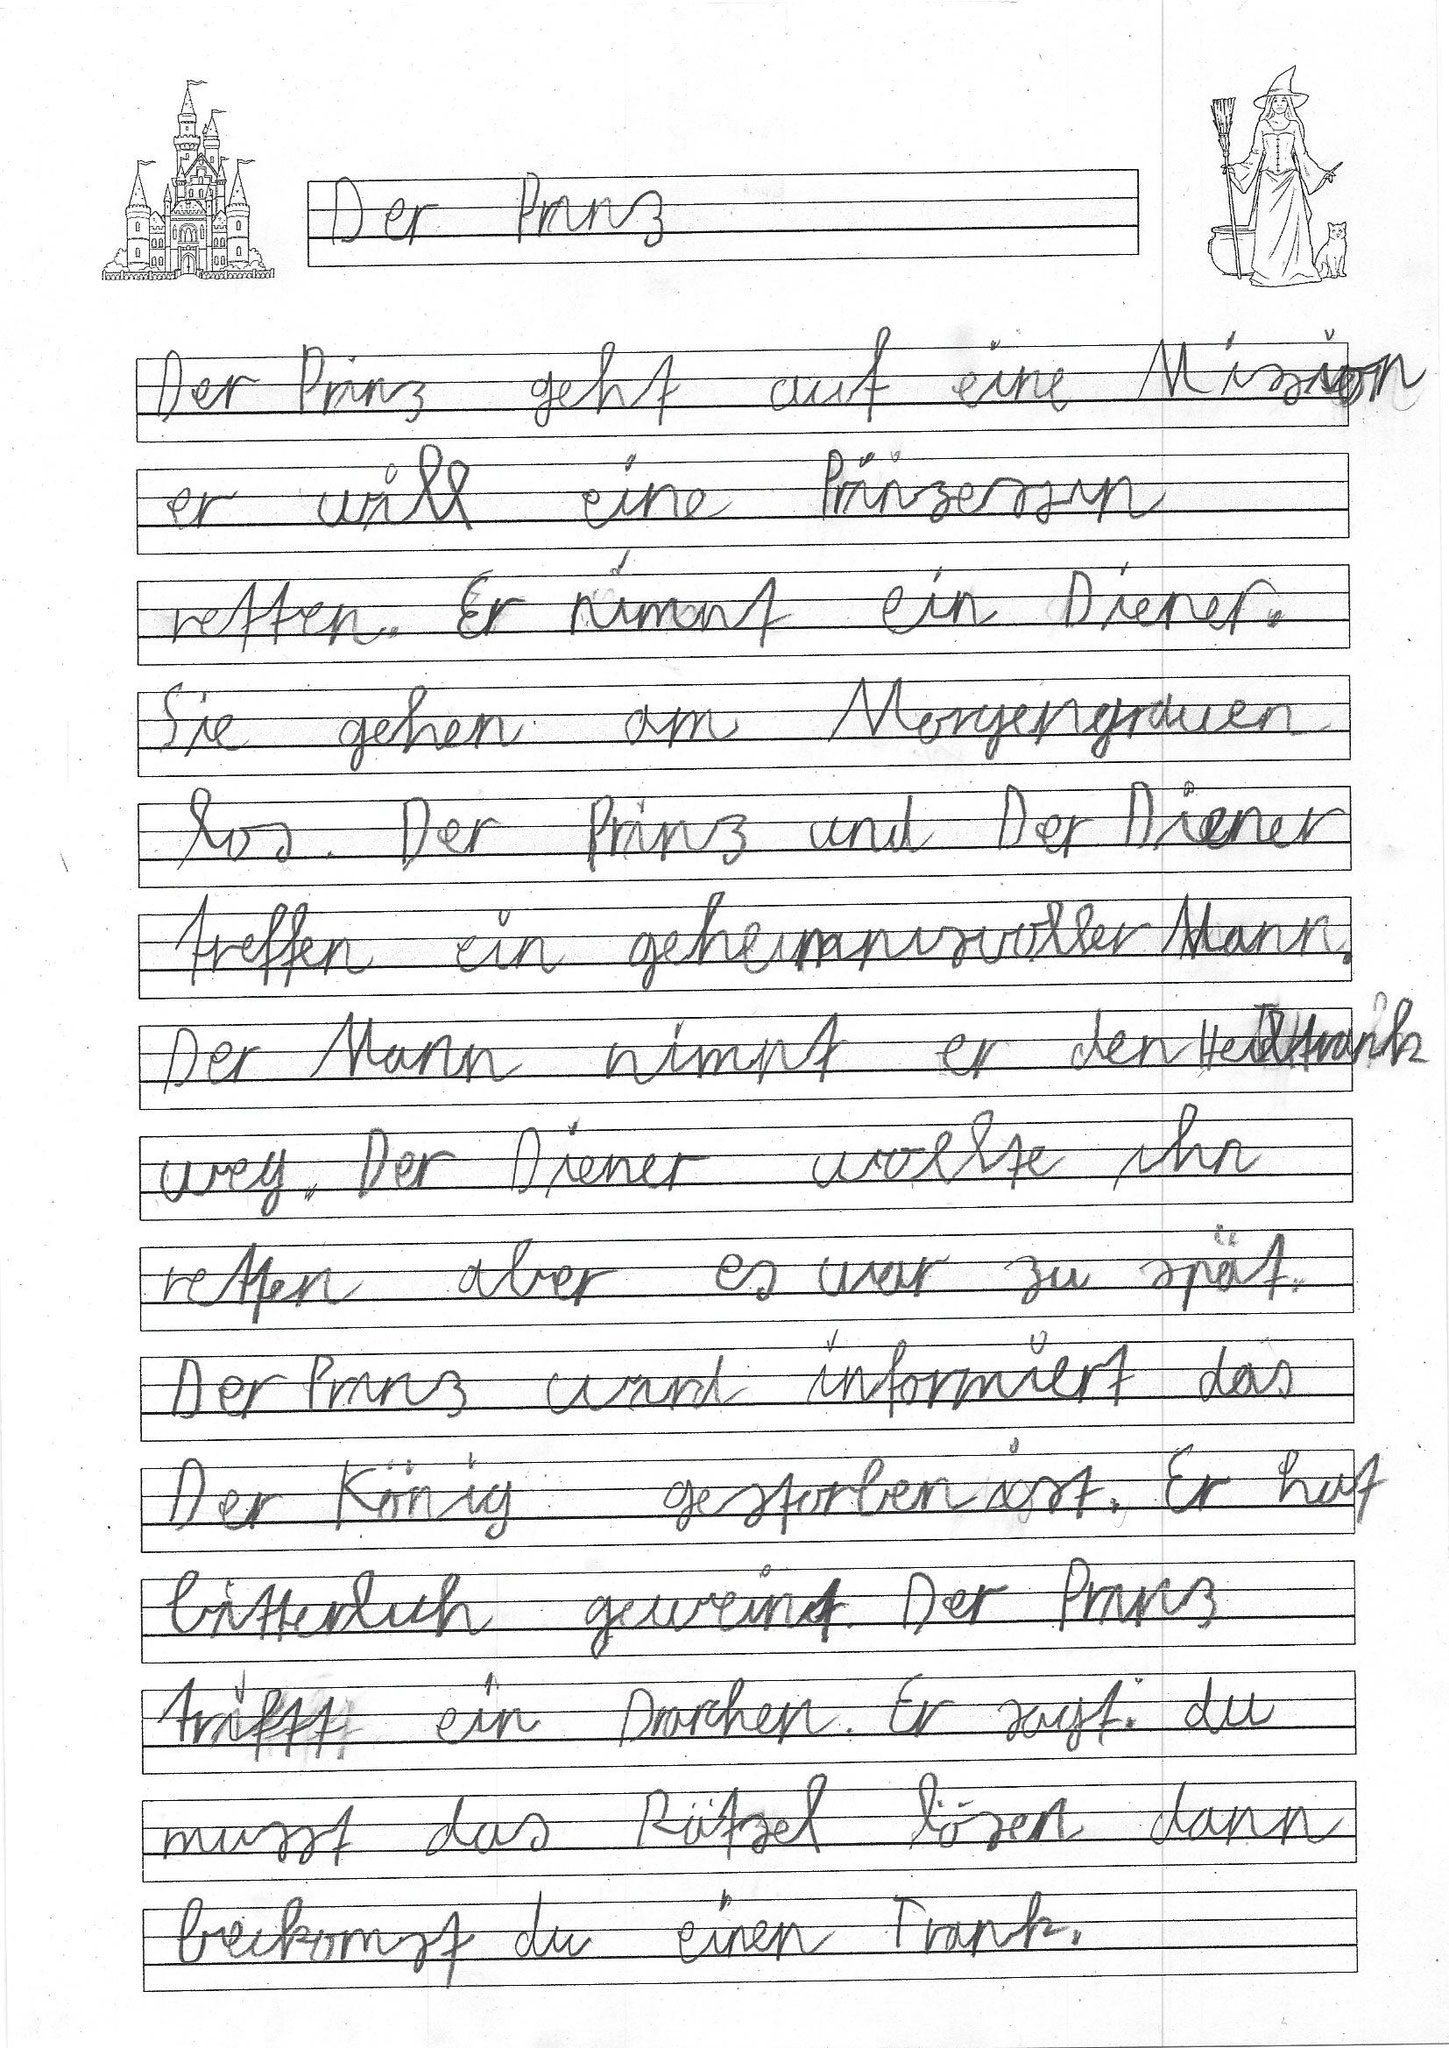 Der Prinz
Der Prinz geht auf eine Mission
er will eine Prinzessin
retten. Er nimmt ein Diener.
Sie gehen am Morgengrauen
los. Der Prinz und Der Diener
treffen ein geheimnisvoller Mann.
Der Mann nimmt er den Heiltrank
weg. Der Diener wollte ihn
retten aber es war zu spät.
Der Prinz wird informiert das
Der König gestorben ist. Er hat
bitterlich geweint. Der Prinz
trifft ein Drachen. Er sagt: du
musst das Rätsel lösen dann
bekomst du einen Trank.